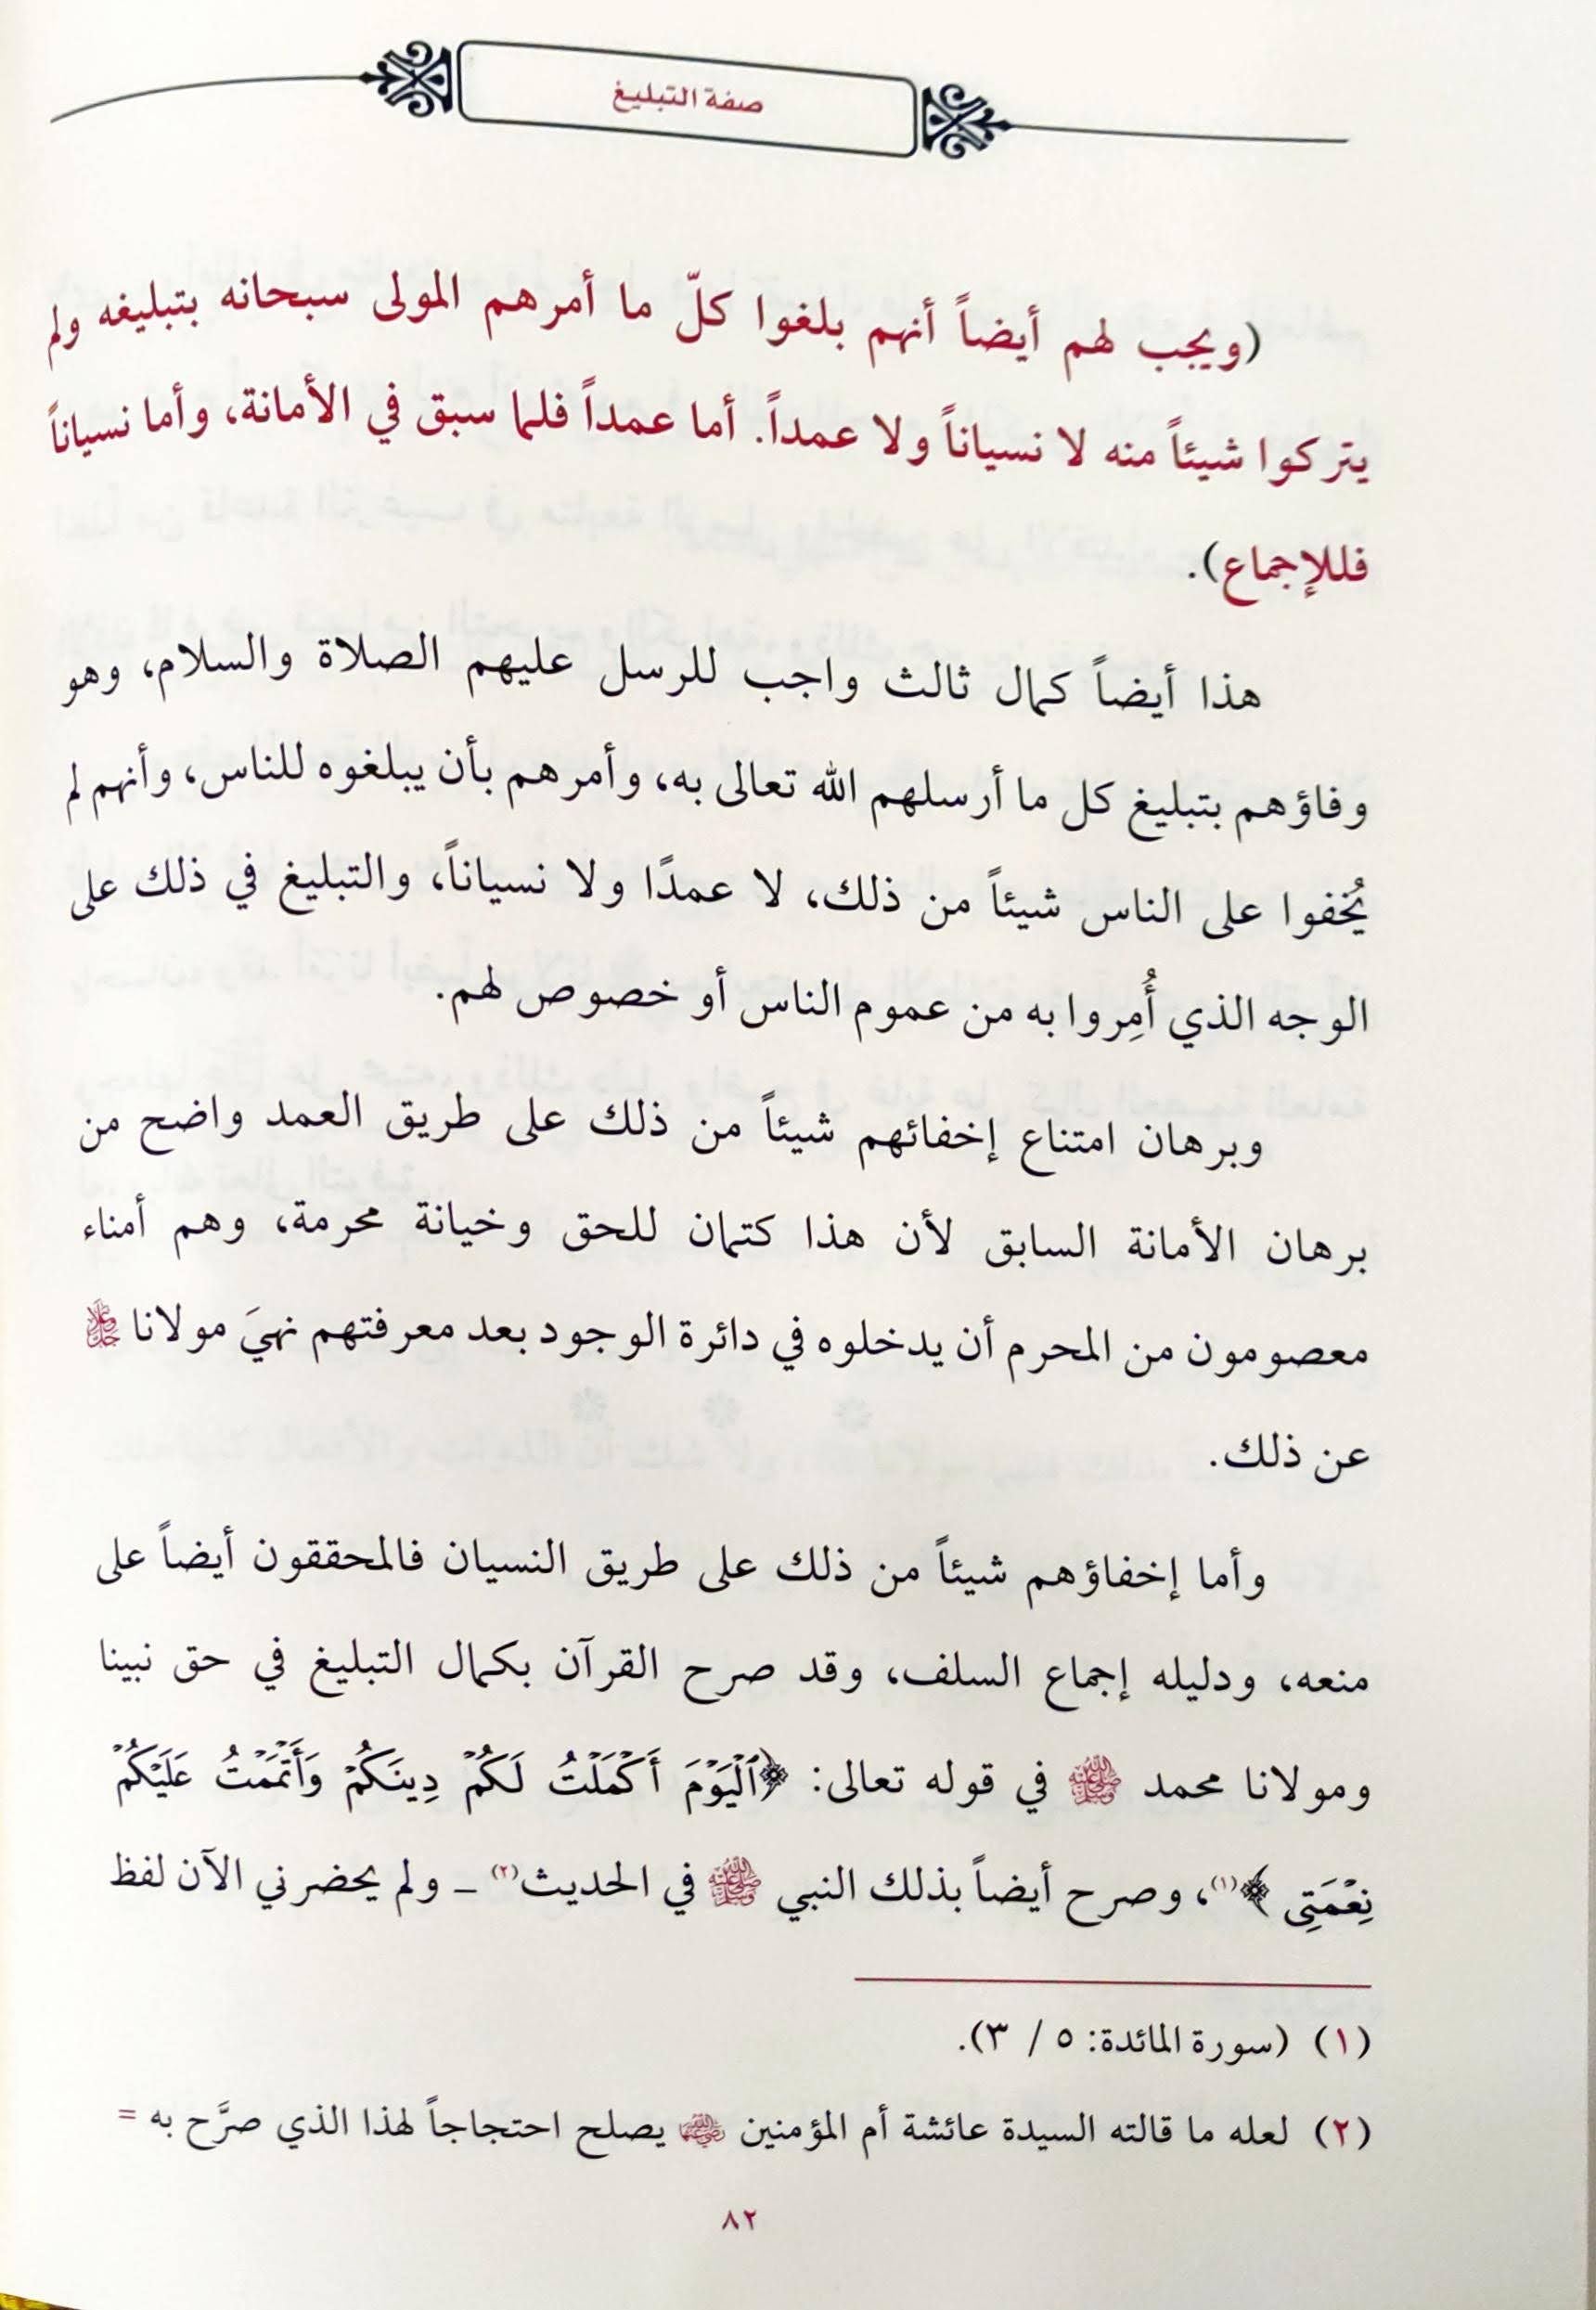 صفة التبليغ
(ويجب لهم أيضاً أنهم بلغوا كلّ ما أمرهم المولى سبحانه بتبليغه ولم
يتركوا شيئاً منه لا نسياناً ولا عمداً. أما عمداً فلما سبق في الأمانة، وأما نسياناً
فللإجماع).
هذا أيضاً كمال ثالث واجب للرسل عليهم الصلاة والسلام، وهو
وفاؤهم بتبليغ كل ما أرسلهم الله تعالى به، وأمرهم بأن يبلغوه للناس، وأنهم لم
يُخفوا على الناس شيئاً من ذلك، لا عمدًا ولا نسياناً، والتبليغ في ذلك على
الوجه الذي أُمِروا به من عموم الناس أو خصوص لهم.
وبرهان امتناع إخفائهم شيئاً من ذلك على طريق العمد واضح من
برهان الأمانة السابق لأن هذا كتمان للحق وخيانة محرمة، وهم أمناء
معصومون من المحرم أن يدخلوه في دائرة الوجود بعد معرفتهم نهيَ مولانا جل وعلا
عن ذلك.
وأما إخفاؤهم شيئاً من ذلك على طريق النسيان فالمحققون أيضاً على
منعه، ودليله إجماع السلف، وقد صرح القرآن بكمال التبليغ في حق نبينا
ومولانا محمد ﷺ في قوله تعالى: ﴿ٱلْيَوْمَ أَكْمَلْتُ لَكُمْ دِينَكُمْ وَأَتْمَمْتُ عَلَيْكُمْ
نِعْمَتِى ﴾(١)، وصرح أيضاً بذلك النبي ﷺ في الحديث(٢) – ولم يحضرني الآن لفظ
(١) (سورة المائدة: ٥ / ٣).
(٢) لعله ما قالته السيدة عائشة أم المؤمنين رضي الله عنها يصلح احتجاجاً لهذا الذي صرَّح به =
٨٢